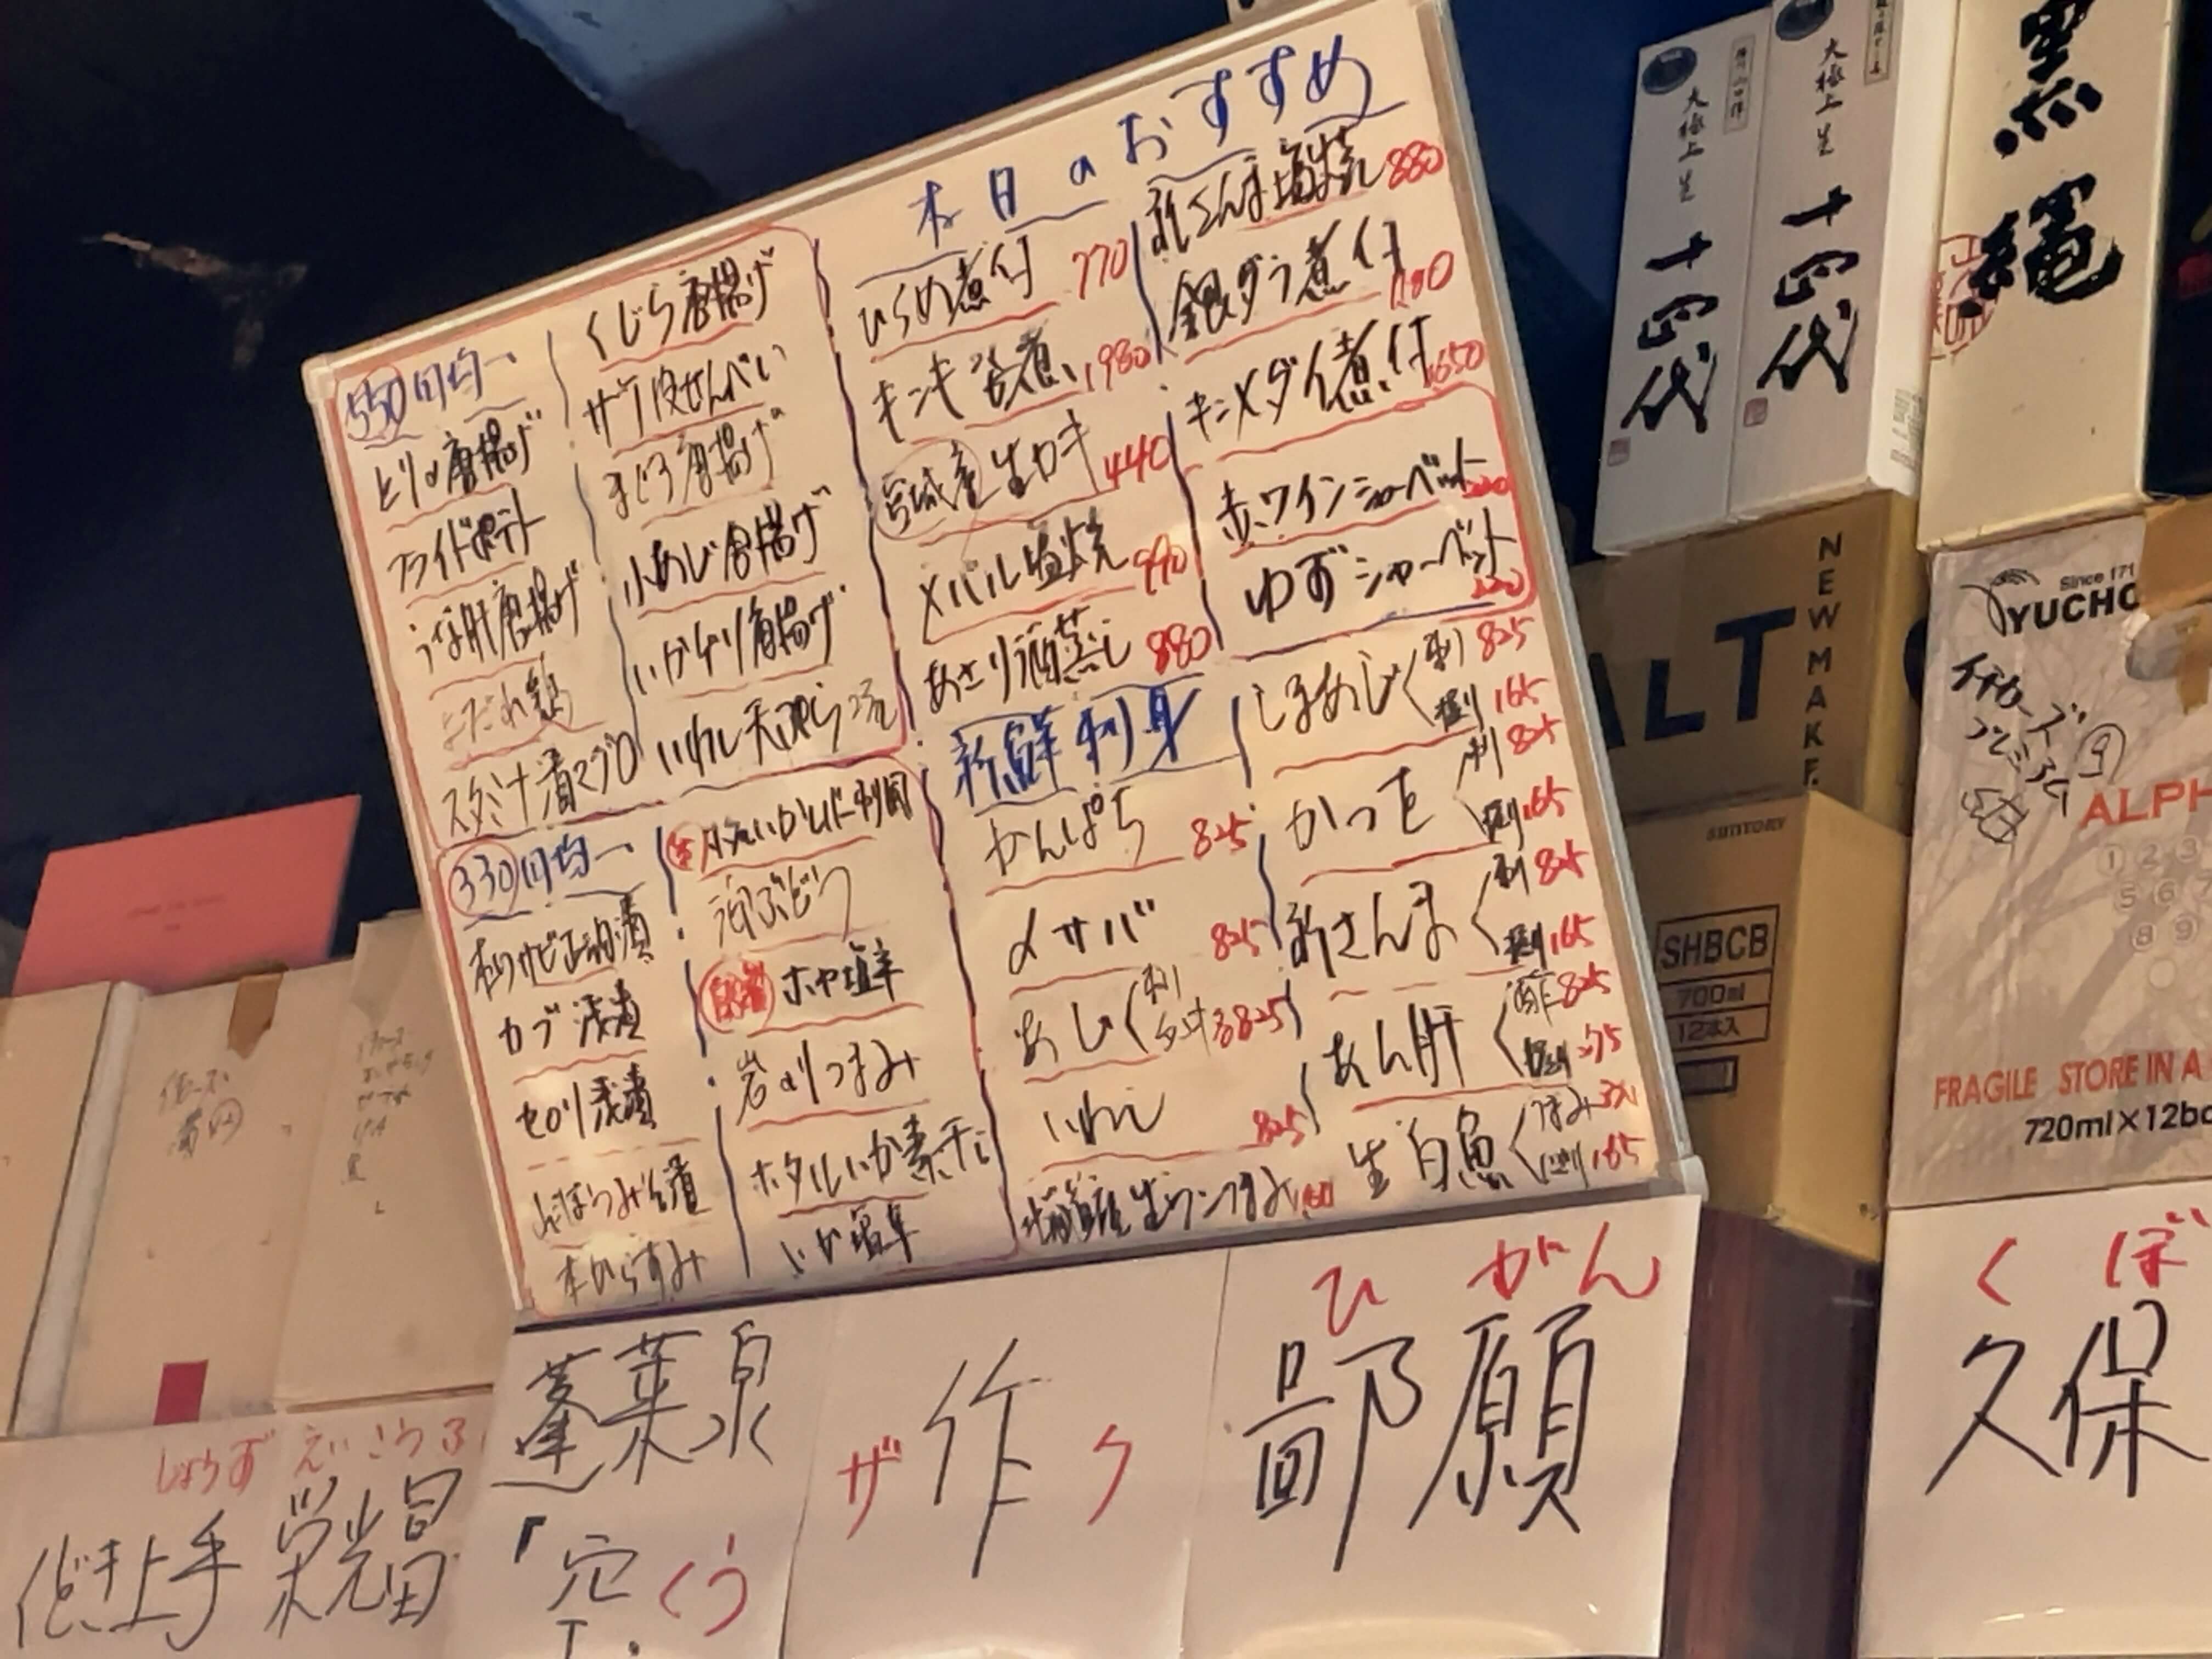 本日のおすすめ
550円均一
とりの唐揚げ
フライドポテト
うな肝唐揚げ
よだれ鶏
スタミナ漬マグロ
くじら唐揚げ
サケ皮せんべい
まぐろ唐揚げ
小あじ唐揚げ
いかゲソ唐揚げ
いわし天ぷら
330円均一
本わさび
カブ浅漬
セロリ浅漬
本からすみ
海ぶどう
自家製 ホヤ塩辛
岩のりつまみ
ホタルいか素干し
いか塩辛
ひらめ煮付 770
キンキ煮 1980
宮城産 生カキ 440
メバル塩焼
あさり酒蒸し 880
新さんま塩焼 880
銀ダラ煮付
キンメダイ煮付 1650
赤ワインシャーベット
ゆずシャーベット
新鮮刺身
かんぱち 825
〆サバ 825
あじ 刺 825
いわし 825
しまあじ 刺 825
握り 165
かつを 刺 825
握り 165
新さんま 刺 825
握り 165
あん肝 酢 825
握り 275
生白魚 つまみ
握り 165
大極上生 十四代
大極上生 十四代
黒縄
NEW MAKE
ALT
Since 171
YUCHO
ALPH
FRAGILE STORE IN A
720ml×12bo
SUNTORY
SHBCB
700ml
12本入
しょうず
えいこうふ
上手
栄光冨
蓬莱泉
「空」 くう
ザ 作 ク
ひがん
鄙願
くぼ
久保